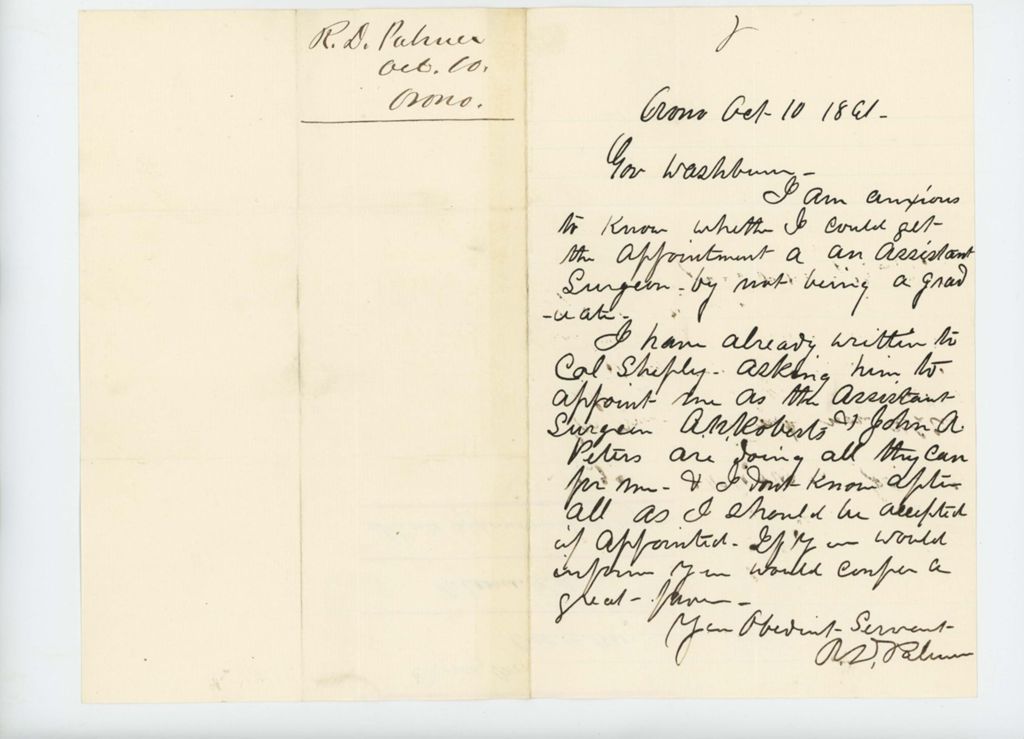 R. D. Palmer
Oct. 10.
Orono.
Orono Oct 10 1861-
Gov Washburn-
I am anxious
to know whether I could get
the appointment a an assistant
Surgeon - by not being a grad
-uate-
I have already written to
Col Sheply- asking him to
appoint me as the assistant
Surgeon A.W. Roberts & John A.
Peters are doing all they can
for me- & I dont know after
all as I should be accepted
if appointed- If you would
inform you would confer a
great- favor-
Your Obedient Servant
R. D. Palmer